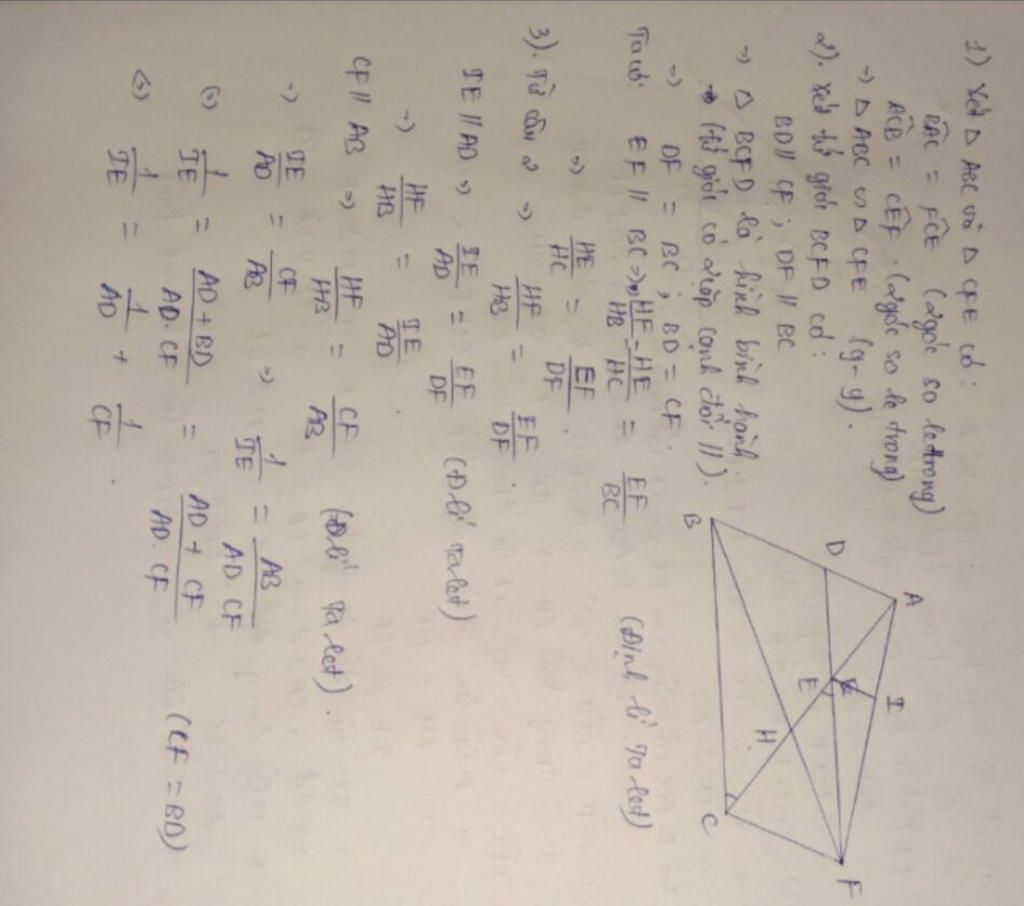 1) Xét Δ ABC và Δ CFE có:
BAC = FCE (2 góc so le trong)
ACB = CEF. (2 góc so le trong)
=> Δ ABC ∽ Δ CFE (g-g).
2). Xét tứ giác BCFD có:
BD // CF; DF // BC
=> Δ BCFD là hình bình hành.
=> (tứ giác có 2 cặp cạnh đối //).
=> DF = BC; BD = CF.
Ta có: EF // BC => HF/HB = HE/HC = EF/BC (Định lí Ta let)
=> HE/HC = EF/DF.
3). Từ câu 2 => HF/HB = EF/DF.
IE // AD => IE/AD = EF/DF (Đlí Ta let)
=> HF/HB = IE/AD
CF // AB => HF/HB = CF/AB (Đlí Ta let).
=> IE/AD = CF/AB => 1/IE = AB/AD.CF
(=) 1/IE = AD+BD/AD.CF = AD+CF/AD.CF (CF = BD)
(=) 1/IE = 1/AD + 1/CF.
A
D
I
B
E
H
C
F